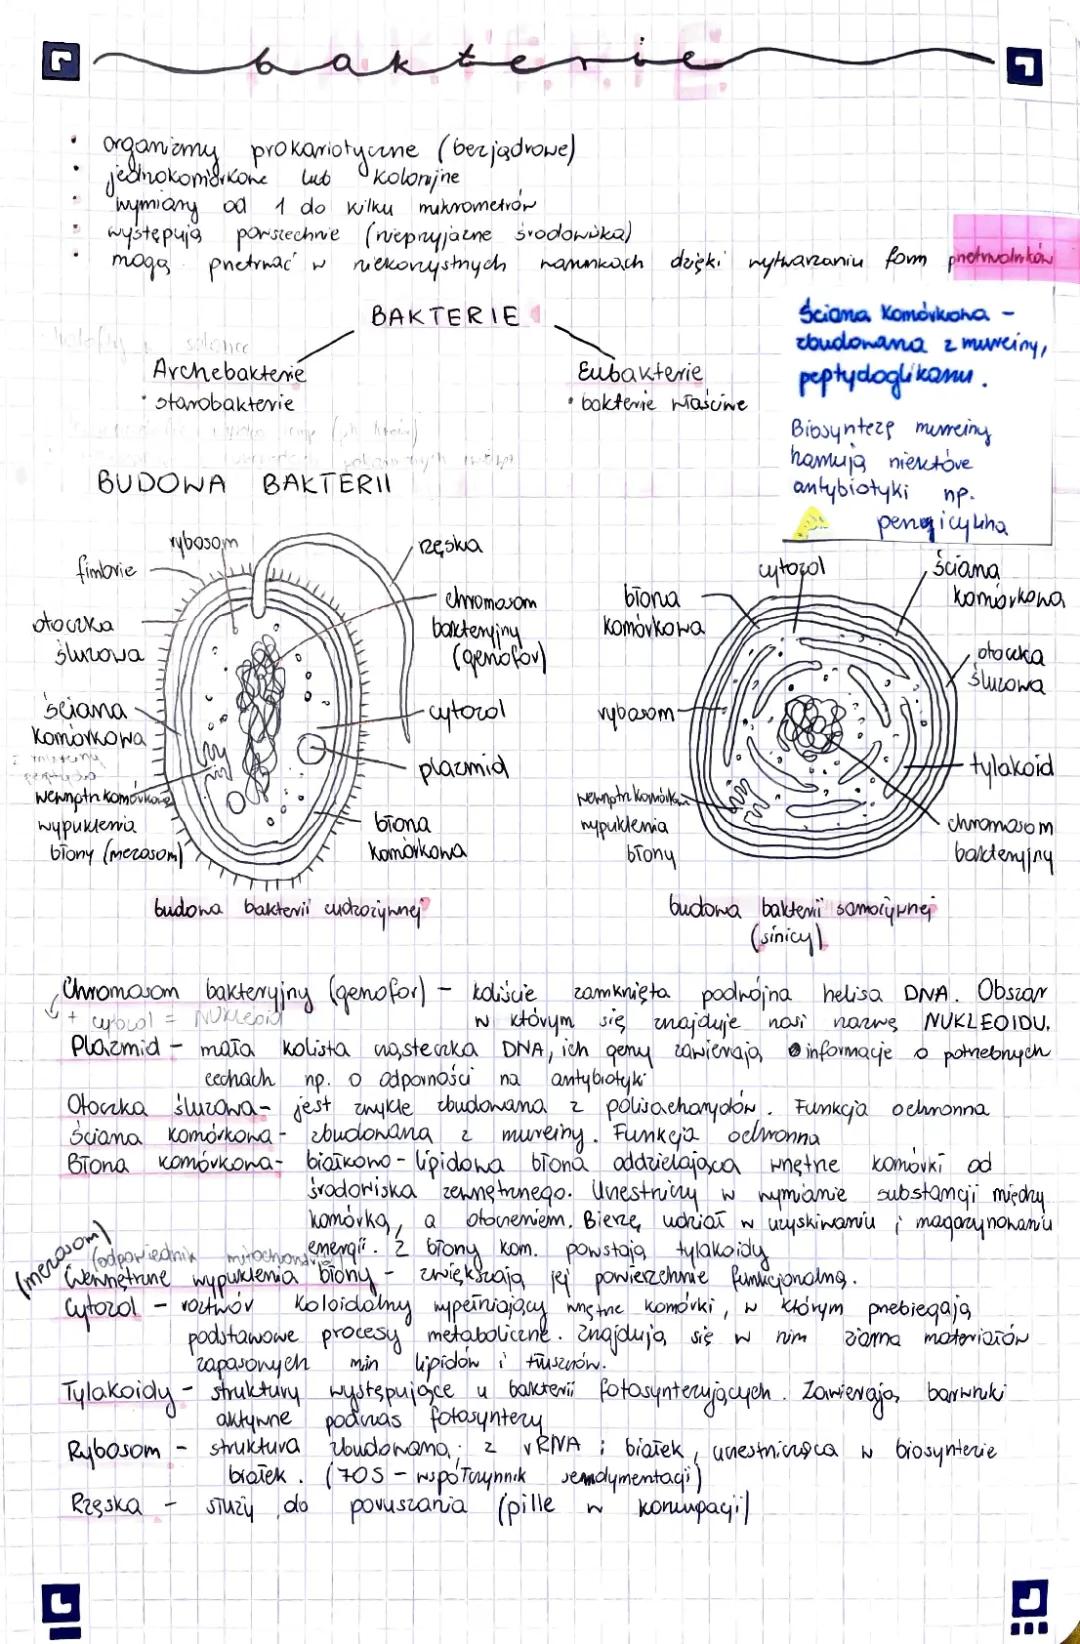 bakterie
• organizmy prokariotyczne (bezjądrowe)
• jednokomórkowe lub kolonijne
• wymiary od 1 do kilku mikrometrów
• występują powszechnie (nieprzyjazne środowiska)
• mogą przetrwać w niekorzystnych warunkach dzięki wytwarzaniu form przetrwalników
BAKTERIE
Archebakterie
• starobakterie
Eubakterie
• bakterie właściwe
Ściana komórkowa -
zbudowana z mureiny,
peptydoglikanu.
Biosyntezę mureiny
hamują niektóre
antybiotyki np.
penicylina
BUDOWA BAKTERII
rybosom
fimbrie
otoczka
śluzowa
ściana
komórkowa
z mureiny
wewnątrzkomórkowe
wypuklenia
błony (mezosom)
rzęska
chromosom
bakteryjny
(genofor)
cytozol
plazmid
błona
komórkowa
budowa bakterii cudzożywnej
cytozol
błona
komórkowa
rybosom
wewnątrzkomórkowe
wypuklenia
błony
ściana
komórkowa
otoczka
śluzowa
tylakoid
chromosom
bakteryjny
budowa bakterii samożywnej
(sinicy)
Chromosom bakteryjny (genofor) - koliście zamknięta podwójna helisa DNA. Obszar
+ cytozol = NUKleoid
w którym się znajduje nosi nazwę NUKLEOIDU.
Plazmid - mała kolista cząsteczka DNA, ich geny zawierają informacje o potrzebnych
cechach np. o odporności na antybiotyki
Otoczka śluzowa - jest zwykle zbudowana z polisacharydów. Funkcja ochronna
Ściana komórkowa - zbudowana z mureiny. Funkcja ochronna
Błona komórkowa - białkowo-lipidowa błona oddzielająca wnętrze komórki od
środowiska zewnętrznego. Uczestniczy w wymianie substancji między
komórką, a otoczeniem. Bierze udział w uzyskiwaniu i magazynowaniu
energii. Z błony kom. powstają tylakoidy
(mezosom) (odpowiednik mitochondria)
Wewnętrzne wypuklenia błony - zwiększają jej powierzchnie funkcjonalną.
Cytozol - roztwór koloidalny wypełniający wnętrze komórki, w którym przebiegają
podstawowe procesy metaboliczne. Znajdują się w nim ziarna materiałów
zapasowych min lipidów i tłuszczów.
Tylakoidy - struktury występujące u bakterii fotosyntezujących. Zawierają barwniki
aktywne podczas fotosyntezy
Rybosom - struktura zbudowana z rRNA i białek, uczestnicząca w biosyntezie
białek. (70S - współczynnik sendymentacji)
Rzęska - służy do poruszania (pille w koniugacji)